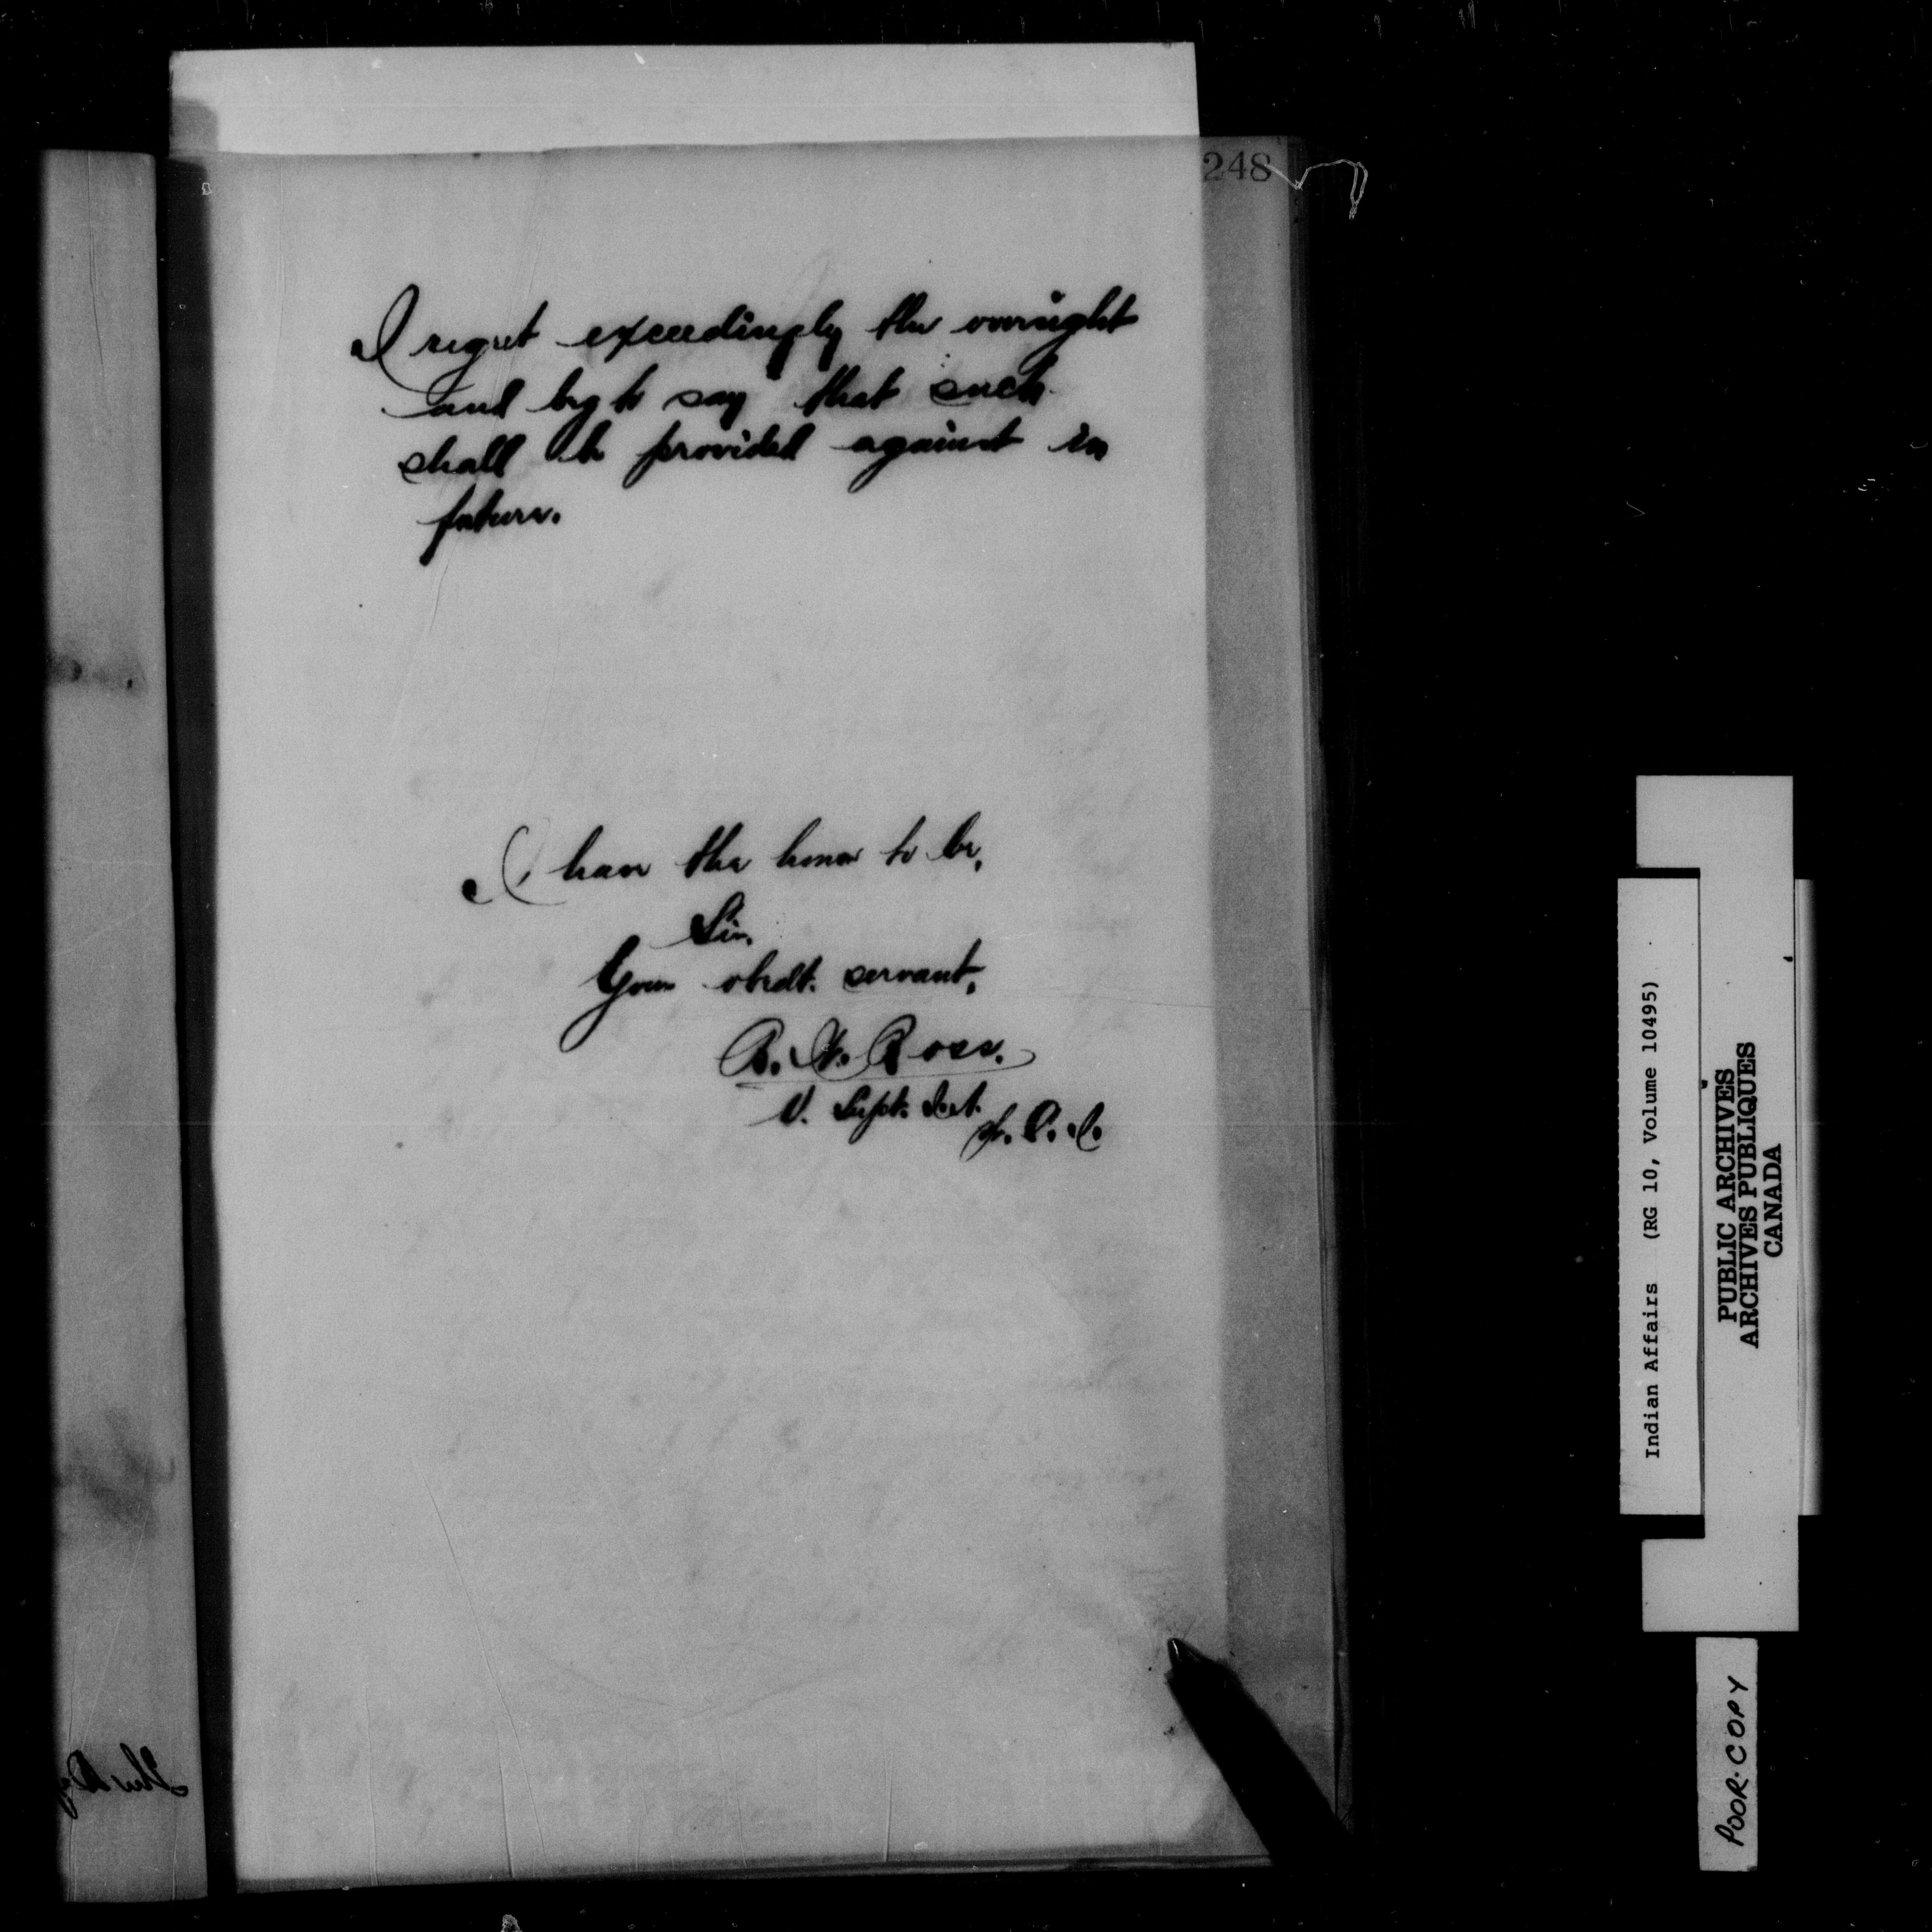 248
I regret exceedingly the oversight
and beg to say that such
shall be provided against in
future.
I have the honor to be,
Sir,
Your obedt. servant,
Ross.
Supt.
Indian Affairs (RG 10, Volume 10495)
PUBLIC ARCHIVES
ARCHIVES PUBLIQUES
CANADA
POOR COPY